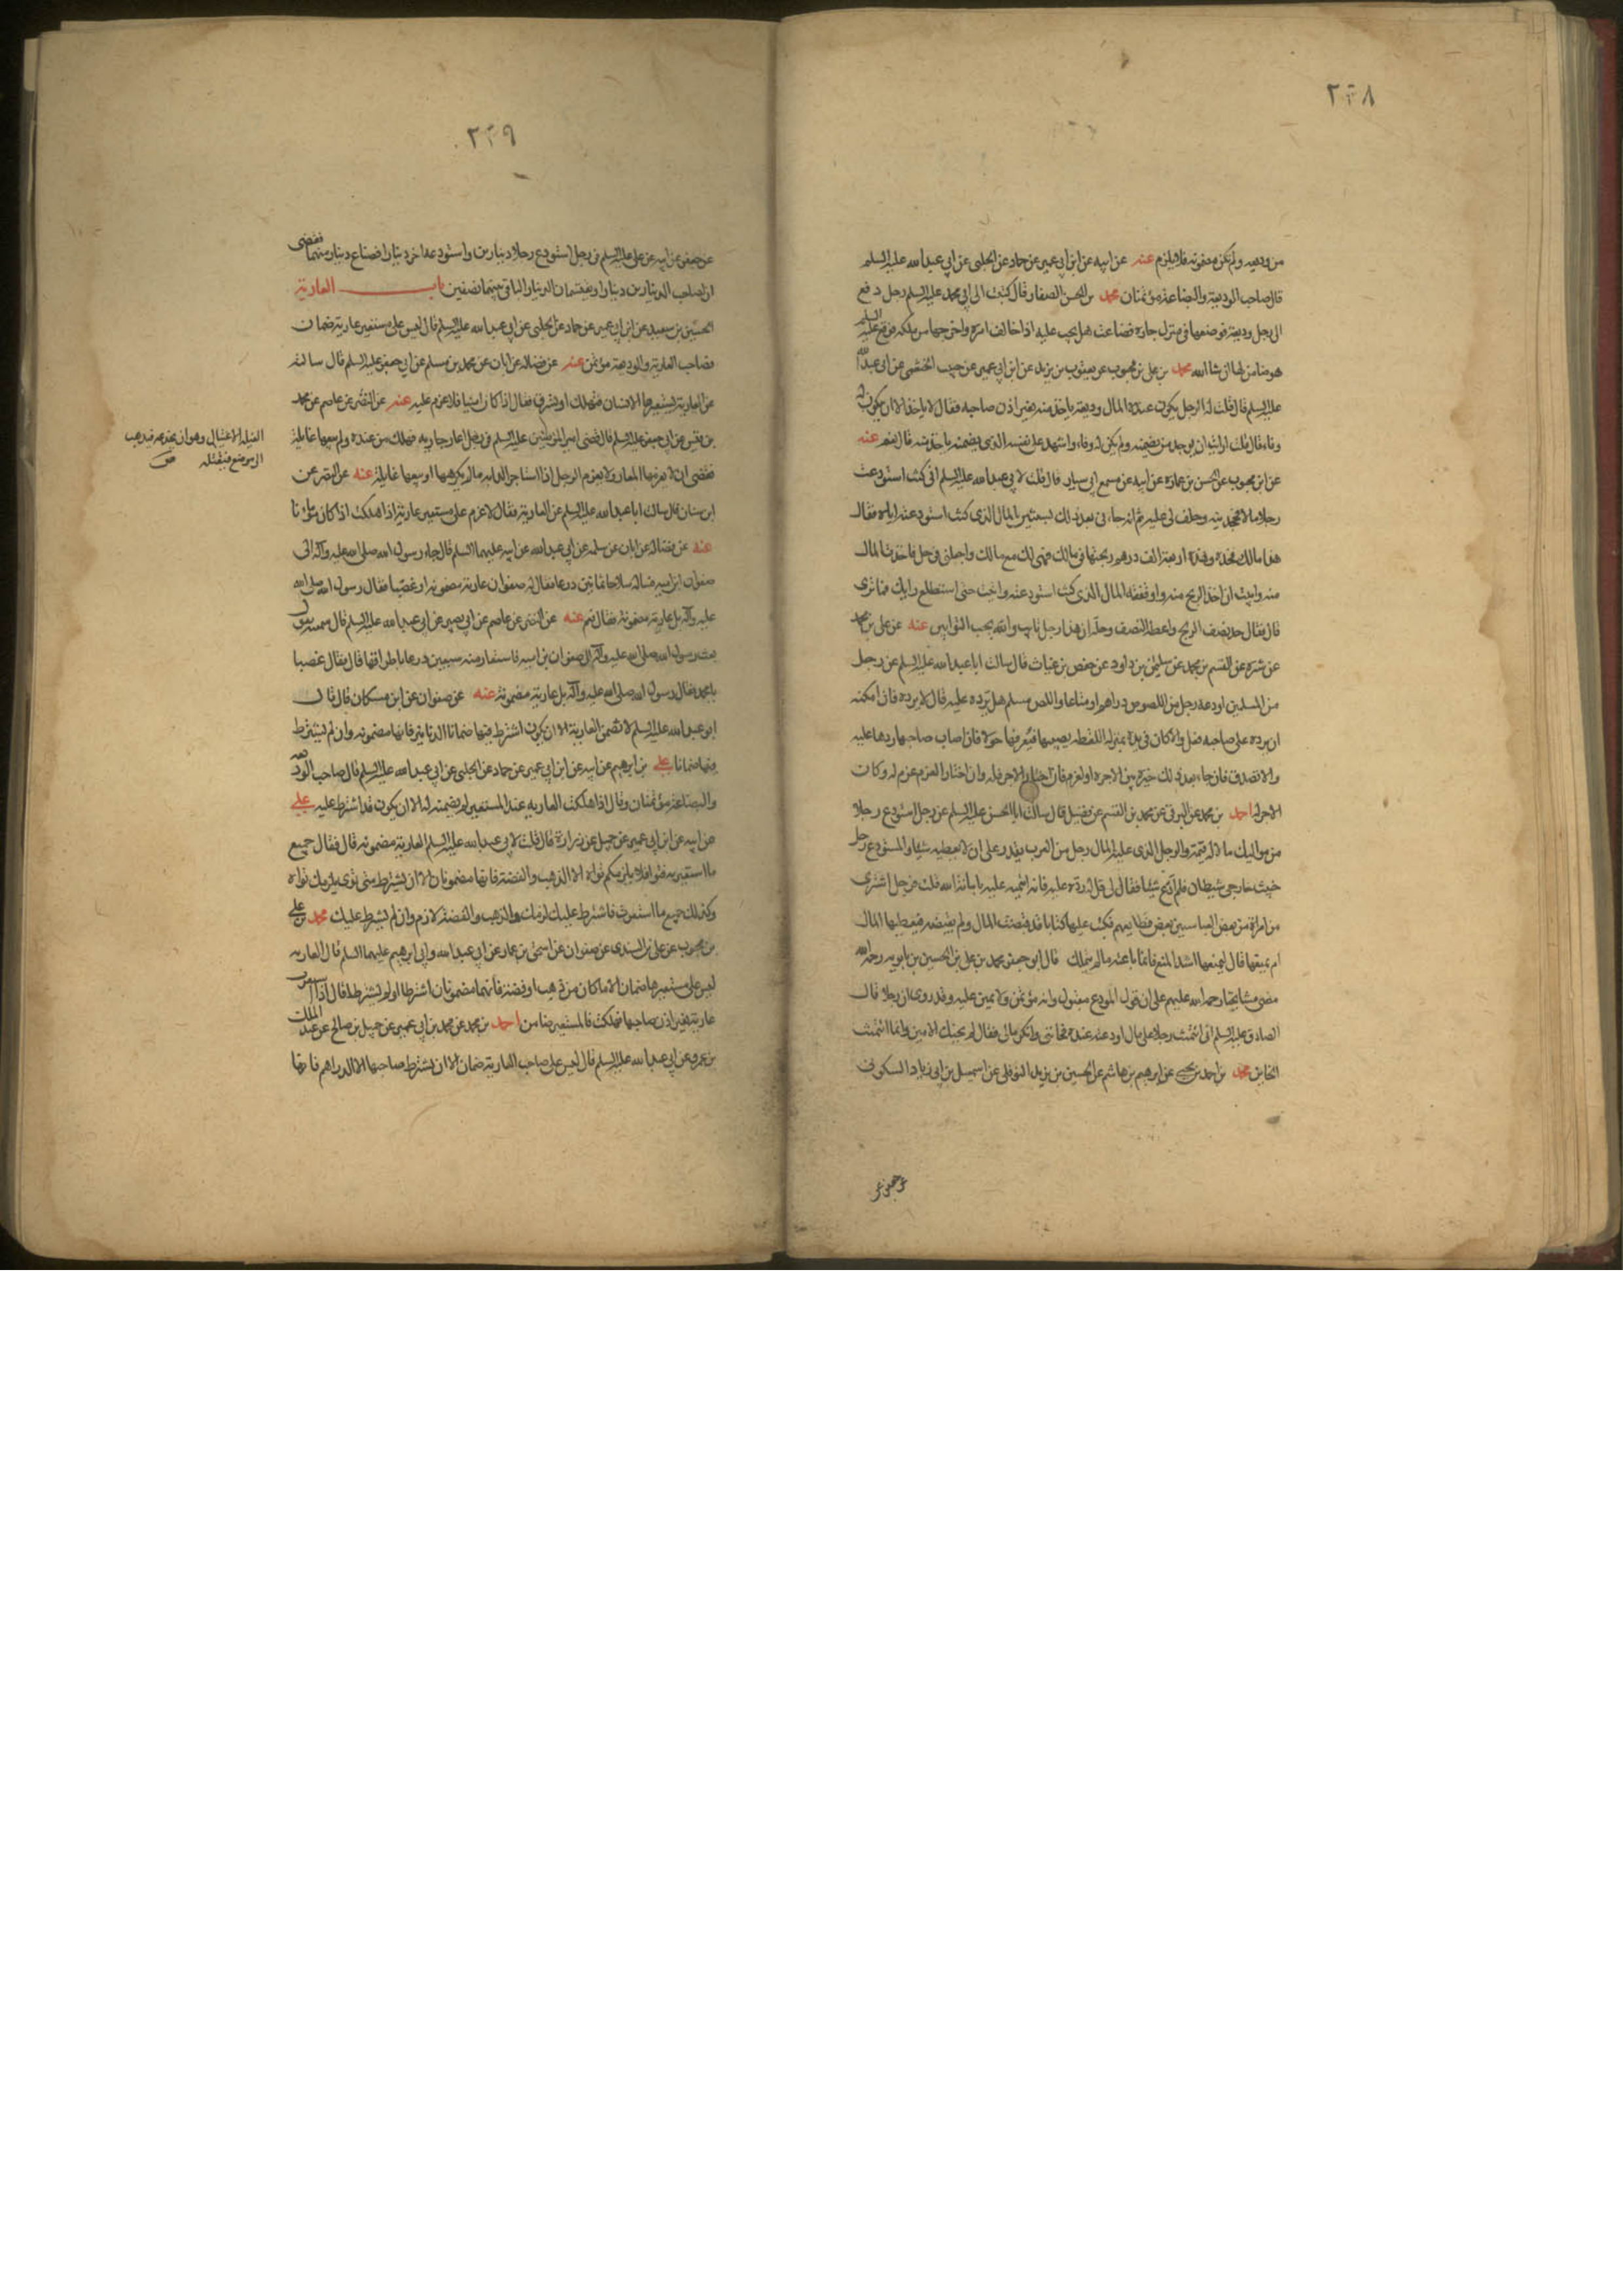 ٢٣٨
من وديعه ولم تكن مضمونه فلا يلزم عنه عن ابيه عن ابن ابي عمير عن حماد عن الحلبي عن ابي عبد الله عليه السلم
قال صاحب الوديعة والبضاعة مؤتمنان محمد بن الحسن الصفار قال كتبت الى ابي محمد عليه السلم رجل دفع
الى رجل وديعة فوضعها في منزل جاره فضاعت هل يجب عليه اذا خالف امره واخرجها من ملكه فوقع عليه السلم
هو ضامن لها ان شاء الله محمد بن علي بن محبوب عن يعقوب بن يزيد عن ابن ابي عمير عن حبيب الخثعمي عن ابي عبد الله
عليه السلم قال قلت له الرجل يكون عنده المال وديعة ياخذ منه بغير اذن صاحبه فقال لا ياخذ الا ان يكون له
وفاء قال قلت ارايت ان وجد من يضمنه ولم يكن له وفاء واشهد على نفسه الذي يضمنه ياخذ منه قال نعم عنه
عن ابن محبوب عن الحسن بن عمارة عن ابيه عن مسمع ابي سيار قال قلت لابي عبد الله عليه السلم اني كنت استودعت
رجلا مالا فجحدنيه وحلف لي عليه ثم انه جاءني بعد ذلك بسنتين بالمال الذي كنت استودعته اياه فقال
هذا مالك فخذه وهذه اربعة الف درهم ربحتها في مالك فهي لك مع مالك واجعلني في حل فاخذت المال
منه وابيت ان اخذ الربح منه واوقفت المال الذي كنت استودعته واتيت حتى استطلع رايك فما ترى
قال فقال خذ نصف الربح واعطه النصف وحله ان هذا رجل تايب والله يحب التوابين عنه عن علي بن محمد
عن شيرة عن القسم بن محمد عن سليمن بن داود عن حفص بن غياث قال سالت ابا عبد الله عليه السلم عن رجل
من المسلمين اودعه رجل من اللصوص دراهم او متاعا واللص مسلم هل يرده عليه قال لا يرده فان امكنه
ان يرده على صاحبه فعل والا كان في يده بمنزلة اللقطه يصيبها فيعرفها حولا فان اصاب صاحبها ردها عليه
والا تصدق فان جاء بعد ذلك خيره بين الاجره او الغرم فان اختار الاجر فله وان اختار الغرم غرم له وكان
الاجر له احمد بن محمد عن البرقي عن محمد بن القسم عن فضيل قال سالت ابا الحسن عليه السلم عن رجل استودع رجلا
من مواليك مالا له قيمة والرجل الذي عليه المال رجل من العرب يقدر على ان لا يعطيه شيئا والمستودع رجل
خبيث خارجي شيطان فلم ادع شيئا فقال لي قل له رده عليه فانه ائتمنه عليه بامانة الله قلت فرجل اشترى
من امراة من بعض العباسيين بعض قطايعهم فكتب عليها كتابا قد قبضت المال ولم يقبضه فيعطيها المال
ام يمنعها قال ليمنعها اشد المنع فانما باعته مالم تملك قال ابو جعفر محمد بن علي بن الحسين بن بابويه رحمه الله
مضى مشايخنا رحمة الله عليهم على ان قول المودع مقبول وانه مؤتمن ولا يمين عليه وقد روى ان رجلا قال
للصادق عليه السلم اني ائتمنت رجلا على مال اودعته عنده فخانني وانكر مالي فقال لم يخنك الامين وانما ائتمنت
الخاين محمد بن احمد بن يحيى عن ابرهيم بن هاشم عن الحسين بن يزيد النوفلي عن اسمعيل بن ابي زياد السكوني
عن جعفر عن
٢٣٩
عن جعفر عن ابيه عن علي عليه السلم في رجل استودع رجلا دينارين واستودعه اخر دينارا فضاع دينار منهما فقضى
ان لصاحب الدينارين دينارا ويقتسمان الدينار الباقي بينهما نصفين باب العارية
الحسين بن سعيد عن ابن ابي عمير عن حماد عن الحلبي عن ابي عبد الله عليه السلم قال ليس على مستعير عارية ضمان
وصاحب العارية والوديعة مؤتمن عنه عن فضالة عن ابان عن محمد بن مسلم عن ابي جعفر عليه السلم قال سالته
عن العارية يستعيرها الانسان فتهلك او تسرق فقال اذا كان امينا فلا غرم عليه عنه عن النضر عن عاصم عن محمد
بن قيس عن ابي جعفر عليه السلم قال قضى امير المؤمنين عليه السلم في رجل اعار جاريه فهلكت من عنده ولم يبغها غايلة
فقضى ان لا يغرمها المعار ولا يغرم الرجل اذا استاجر الدابه مالم يكرهها او يبغها غايلة عنه عن النضر عن
ابن سنان قال سالت ابا عبد الله عليه السلم عن العارية فقال لا غرم على مستعير عارية اذا هلكت اذا كان مامونا
عنه عن فضالة عن ابان عن سلمه عن ابي عبد الله عن ابيه عليهما السلم قال جاء رسول الله صلى الله عليه وآله الى
صفوان بن امية فساله سلاحا ثمانين درعا فقال له صفوان عارية مضمونه او غصبا فقال رسول الله صلى الله
عليه وآله بل عارية مضمونة فقال نعم عنه عن النضر عن عاصم عن ابي بصير عن ابي عبد الله عليه السلم قال سمعته يقول
بعث رسول الله صلى الله عليه وآله الى صفوان بن امية فاستعار منه سبعين درعا باطراقها قال فقال غصبا
يا محمد فقال رسول الله صلى الله عليه وآله بل عارية مضمونة عنه عن صفوان عن ابن مسكان قال قال
ابو عبد الله عليه السلم لا تضمن العارية الا ان يكون اشترط فيها ضمانا الا الدنانير فانها مضمونه وان لم يشترط
فيها ضمانا علي بن ابرهيم عن ابيه عن ابن ابي عمير عن حماد عن الحلبي عن ابي عبد الله عليه السلم قال صاحب الوديعه
والبضاعة مؤتمنان وقال اذا هلكت العاريه عند المستعير لم يضمنه الا ان يكون قد اشترط عليه علي
عن ابيه عن ابن ابي عمير عن جميل عن زرارة قال قلت لابي عبد الله عليه السلم العارية مضمونه قال فقال جميع
ما استعرته فتوى فلا يلزمكم تواه الا الذهب والفضة فانها مضمونان الا ان يشترط متى توى يلزمك تواه
وكذلك جميع ما استعرت فاشترط عليك لزمك والذهب والفضة لازم وان لم يشترط عليك محمد بن علي
بن محبوب عن علي بن السندي عن صفوان عن اسحق بن عمار عن ابي عبد الله وابي ابرهيم عليهما السلم قال العاريه
ليس على مستعيرها ضمان الا ما كان من ذهب او فضة فانهما مضمونان اشترطا او لم يشترطا قال اذا استعيرت
عارية بغير اذن صاحبها فهلكت فالمستعير ضامن احمد بن محمد عن محمد بن ابي عمير عن جميل بن صالح عن عبد الملك
بن عمرو عن ابي عبد الله عليه السلم قال ليس على صاحب العارية ضمان الا ان يشترط صاحبها الا الدراهم فانها
الغيلة الاغتيال وهو ان يخدعه فيذهب
الى موضع فيقتله ص